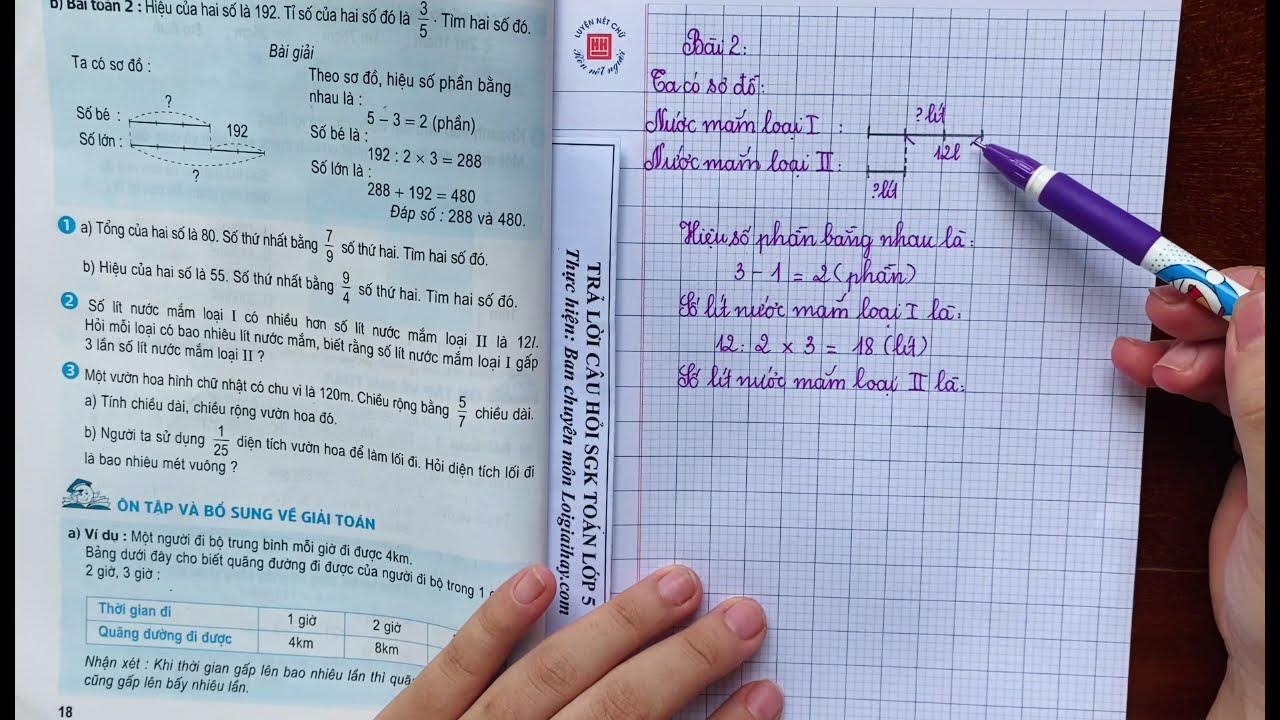 b) Bài toán 2 : Hiệu của hai số là 192. Tỉ số của hai số đó là 3/5 . Tìm hai số đó.
Bài giải
Ta có sơ đồ :
?
Số bé :
Số lớn :
192
?
Theo sơ đồ, hiệu số phần bằng
nhau là :
5 – 3 = 2 (phần)
Số bé là :
192 : 2 × 3 = 288
Số lớn là :
288 + 192 = 480
Đáp số : 288 và 480.
1 a) Tổng của hai số là 80. Số thứ nhất bằng 7/9 số thứ hai. Tìm hai số đó.
b) Hiệu của hai số là 55. Số thứ nhất bằng 9/4 số thứ hai. Tìm hai số đó.
2 Số lít nước mắm loại I có nhiều hơn số lít nước mắm loại II là 12l.
Hỏi mỗi loại có bao nhiêu lít nước mắm, biết rằng số lít nước mắm loại I gấp
3 lần số lít nước mắm loại II ?
3 Một vườn hoa hình chữ nhật có chu vi là 120m. Chiều rộng bằng 5/7 chiều dài.
a) Tính chiều dài, chiều rộng vườn hoa đó.
b) Người ta sử dụng 1/25 diện tích vườn hoa để làm lối đi. Hỏi diện tích lối đi
là bao nhiêu mét vuông ?
ÔN TẬP VÀ BỔ SUNG VỀ GIẢI TOÁN
a) Ví dụ : Một người đi bộ trung bình mỗi giờ đi được 4km.
Bảng dưới đây cho biết quãng đường đi được của người đi bộ trong 1
2 giờ, 3 giờ :
Thời gian đi 1 giờ 2 giờ
Quãng đường đi được 4km 8km
Nhận xét : Khi thời gian gấp lên bao nhiêu lần thì
cũng gấp lên bấy nhiêu lần.
18
TRẢ LỜI CÂU HỎI SGK TOÁN LỚP 5
Thực hiện: Ban chuyên môn Loigiaihay.com
LUYỆN NÉT CHỮ
Rèn nết người
Bài 2:
Ta có sơ đồ:
? lít
Nước mắm loại I :
12l
Nước mắm loại II :
? lít
Hiệu số phần bằng nhau là:
3 – 1 = 2 (phần)
Số lít nước mắm loại I là:
12 : 2 × 3 = 18 (lít)
Số lít nước mắm loại II là: